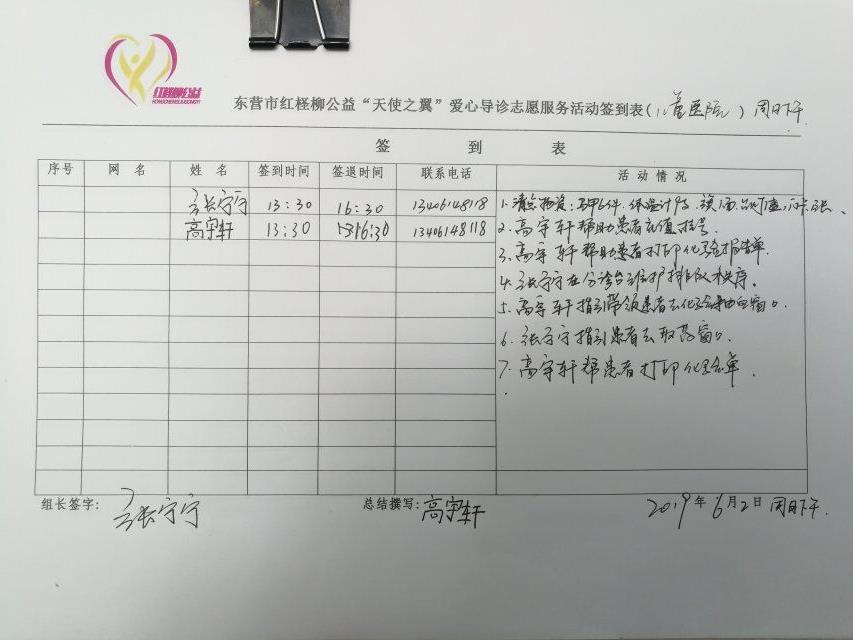 红柽柳公益
HONGCHENGLIUGONGYI
东营市红柽柳公益“天使之翼”爱心导诊志愿服务活动签到表(儿童医院) 周日下午
签 到 表
序号 网 名 姓 名 签到时间 签退时间 联系电话 活 动 情 况
张宁宁 13:30 16:30 13406148118 1. 清点物资:马甲6件、体温计
高宇轩 13:30 16:30 13406148118 2. 高宇轩帮助患者充值挂号
3. 高宇轩帮助患者打印化验报告单
4. 张宁宁在分诊台维护排队秩序.
5. 高宇轩指引带领患者去化验抽血窗口.
6. 张宁宁指引患者去取药窗口.
7. 高宇轩帮患者打印化验单.
组长签字: 张宁宁 总结撰写: 高宇轩 2019年6月2日 周日下午.